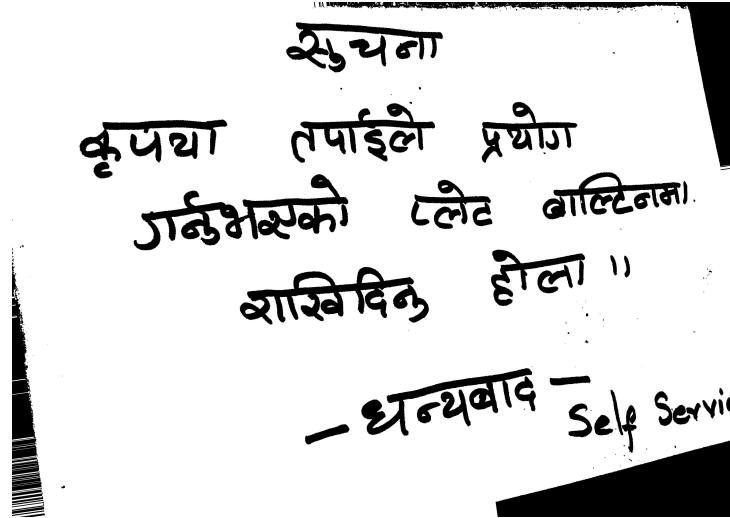 सुचना
कृपया तपाईले प्रयोग
गर्नुभएको प्लेट बाल्टिनमा
राखिदिनु होला ॥
— धन्यबाद —
Self Servi